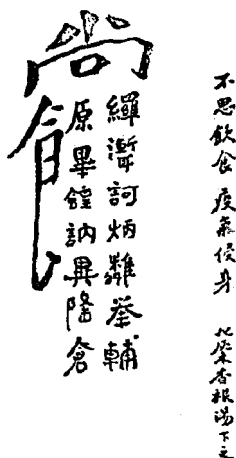 不思飲食 疫氣侵身 杏根湯下之
繟訶炳難举輔
原畢鍠訥異隆倉
尚食